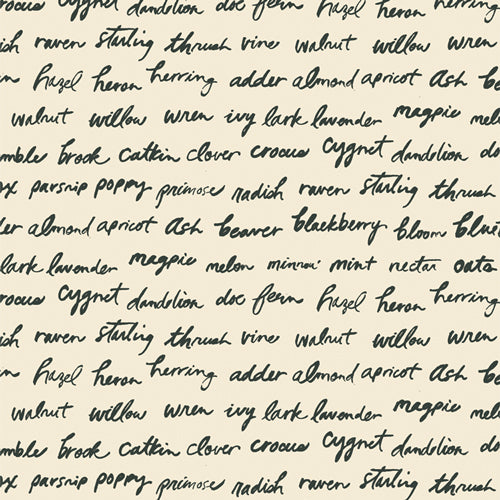 crocus cygnet dandelion doe fern hazel heron herring
radish raven starling thrush vine walnut willow wren
hazel heron herring adder almond apricot ash
walnut willow wren ivy lark lavender magpie melon
bramble brook catkin clover crocus cygnet dandelion doe
parsnip poppy primose radish raven starling thrush
adder almond apricot ash beaver blackberry bloom
lark lavender magpie melon minnow mint nectar oats
crocus cygnet dandelion doe fern hazel heron herring
radish raven starling thrush vine walnut willow wren
hazel heron herring adder almond apricot ash
walnut willow wren ivy lark lavender magpie melon
bramble brook catkin clover crocus cygnet dandelion doe
parsnip poppy primose radish raven starling thrush